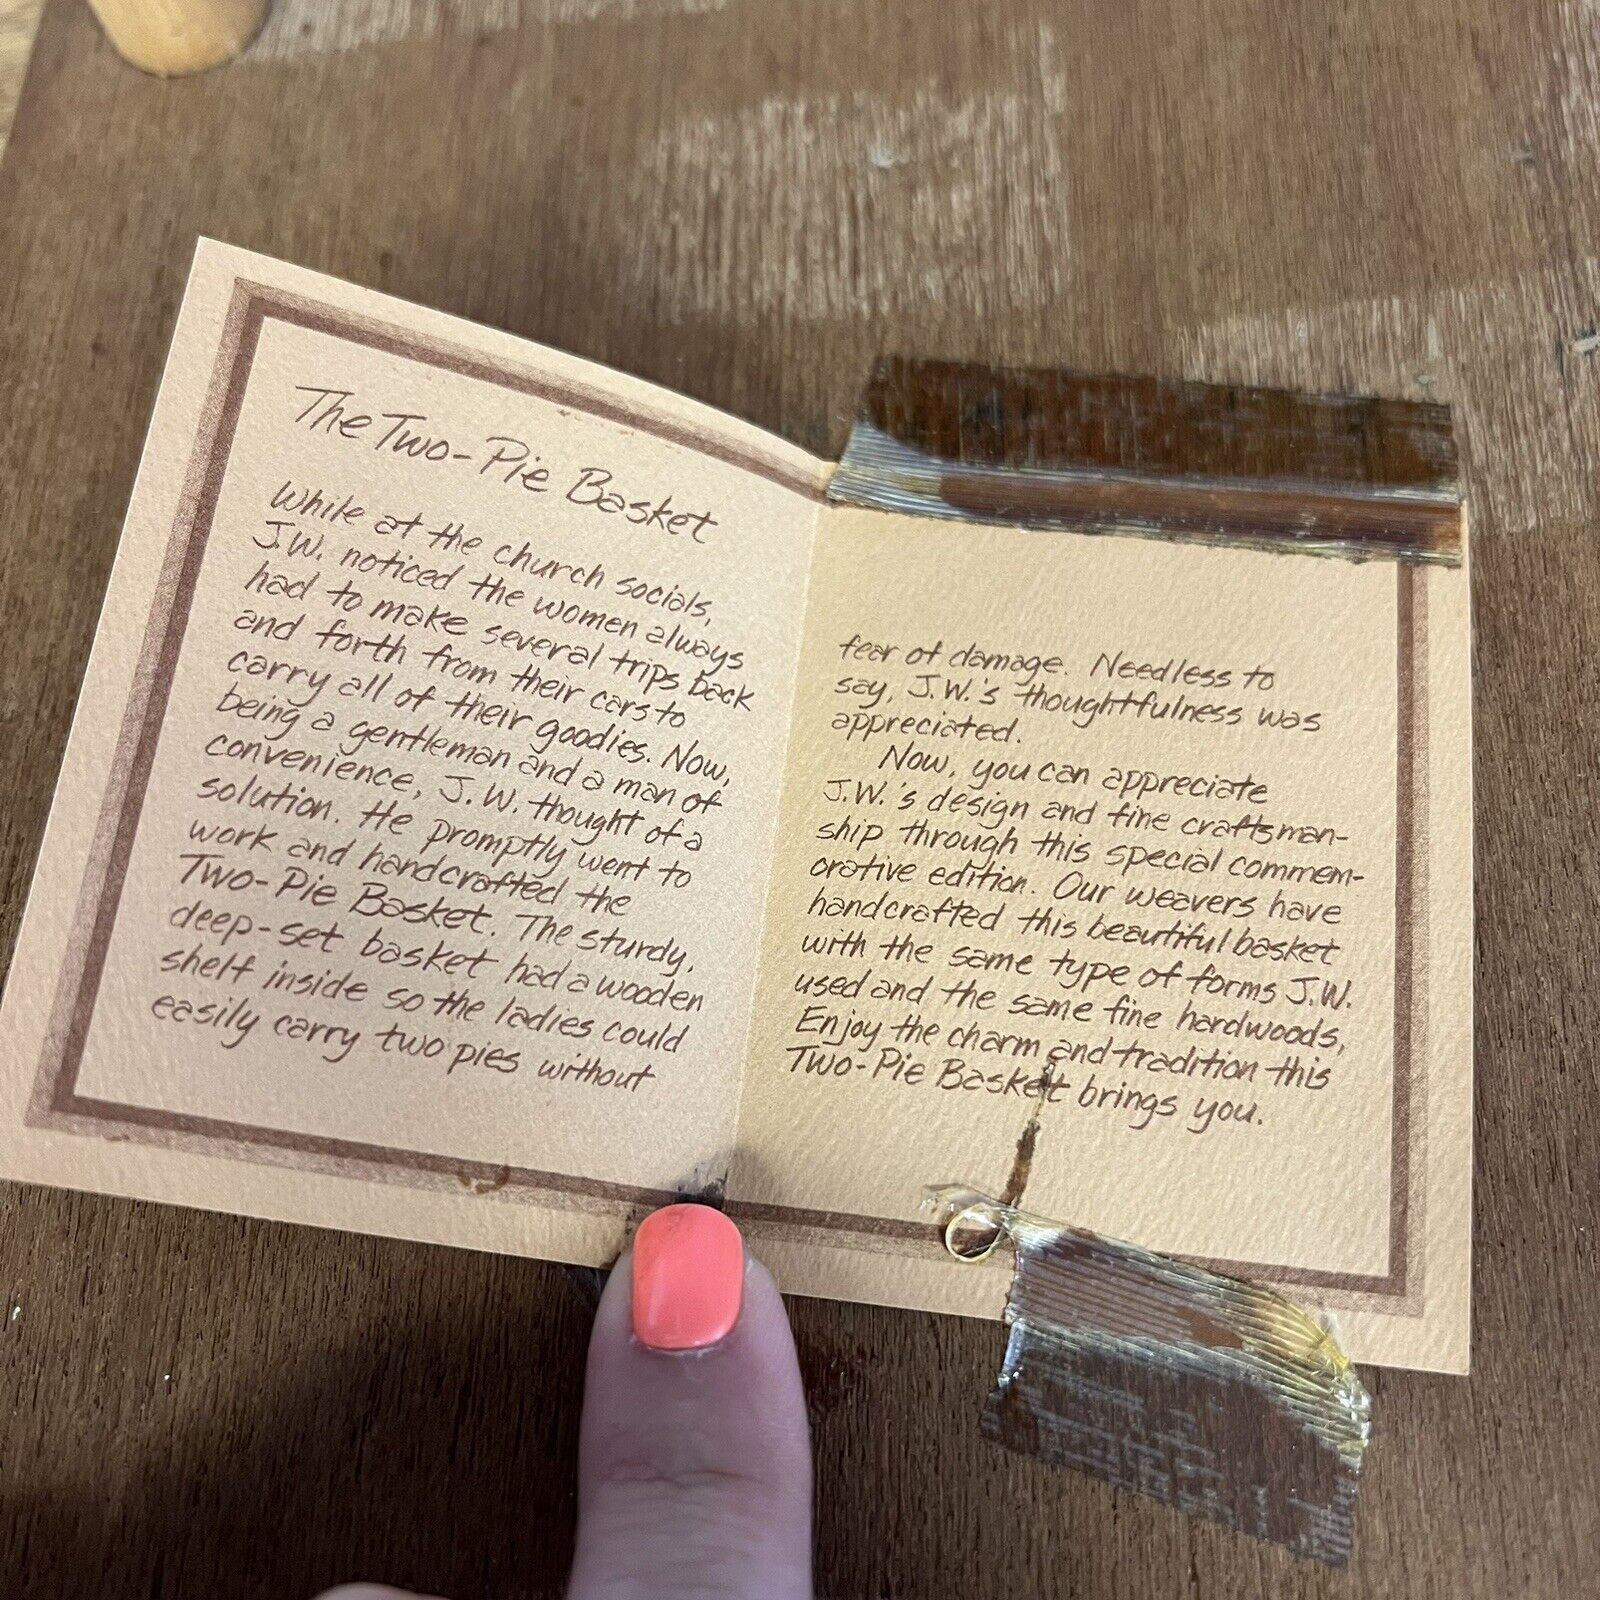 The Two-Pie Basket
While at the church socials,
J.W. noticed the women always
had to make several trips back
and forth from their cars to
carry all of their goodies. Now,
being a gentleman and a man of
convenience, J.W. thought of a
solution. He promptly went to
work and handcrafted the
Two-Pie Basket. The sturdy,
deep-set basket had a wooden
shelf inside so the ladies could
easily carry two pies without
fear of damage. Needless to
say, J.W.'s thoughtfulness was
appreciated.
Now, you can appreciate
J.W.'s design and fine craftsman-
ship through this special commem-
orative edition. Our weavers have
handcrafted this beautiful basket
with the same type of forms J.W.
used and the same fine hardwoods.
Enjoy the charm and tradition this
Two-Pie Basket brings you.